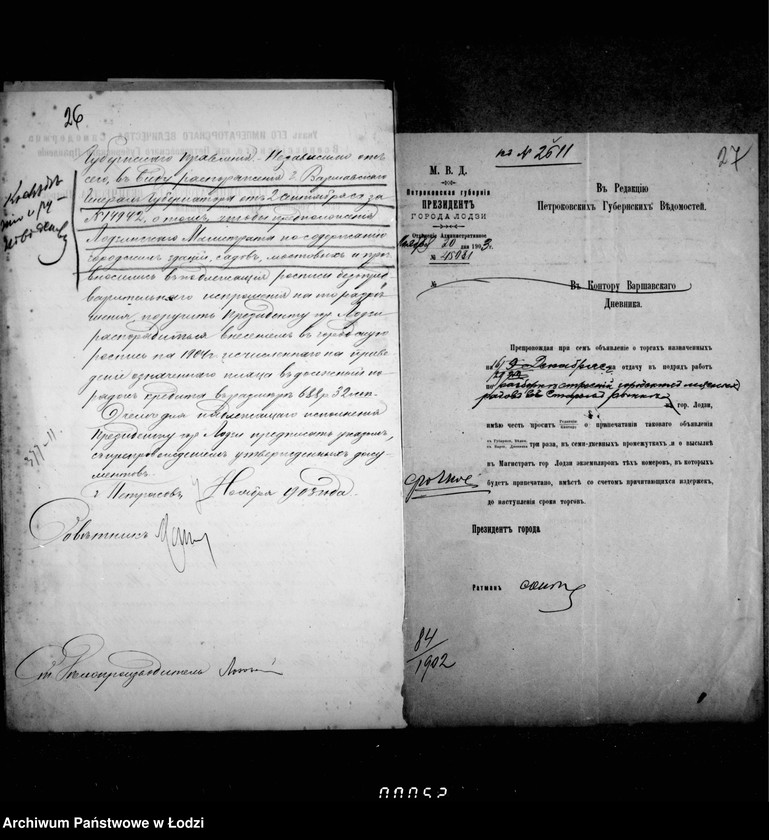 26
Губернскаго Правленія. Независимо отъ
сего, въ виду распоряженія г. Варшавскаго
Генералъ Губернатора отъ 2 Сентября с. г. за
№ 14942, о томъ, чтобы предположенія
Лодзинскаго Магистрата по содержанію
городскихъ зданій, садовъ, мостовыхъ и проч.
вносились въ подлежащія росписи безъ пред
варительнаго испрошенія на то разрѣ
шенія, поручить Президенту гор. Лодзи
распорядиться внесеніемъ въ городскую
роспись на 1904 г. исчисленнаго на приве
деніе означеннаго плаца въ должный по
рядокъ кредита въ размѣрѣ 688 р. 32 коп.
О чемъ для надлежащаго исполненія
Президенту гор. Лодзи предписать указомъ,
съ препровожденіемъ утвержденныхъ доку
ментовъ.
г. Петроковъ Ноября 1903 года.
Совѣтникъ
Ст. Дѣлопроизводитель
27
къ № 2611
М. В. Д.
Петроковская губернія
ПРЕЗИДЕНТЪ
ГОРОДА ЛОДЗИ
Отдѣленіе Административное
Ноября 20 дня 1903 г.
№ 45031
№
Въ Редакцію
Петроковскихъ Губернскихъ Вѣдомостей.
Въ Контору Варшавскаго
Дневника.
Препровождая при семъ объявленіе о торгахъ назначенныхъ
на 9/22 Декабря отдачу въ подрядъ работъ
по разборкѣ строеній городскихъ мясныхъ
рядовъ въ Старомъ рынкѣ въ гор. Лодзи,
имѣю честь просить Редакцію Контору о припечатаніи таковаго объявленія
въ Губернск. Вѣдом. въ Варш. Дневникѣ три раза, въ семи-дневныхъ промежуткахъ и о высылкѣ
въ Магистратъ гор. Лодзи экземпляровъ тѣхъ номеровъ, въ которыхъ
будетъ припечатано, вмѣстѣ со счетомъ причитающихся издержекъ,
до наступленія срока торговъ.
срочное
Президентъ города
Ратманъ
84/1902
00052
Archiwum Państwowe w Łodzi